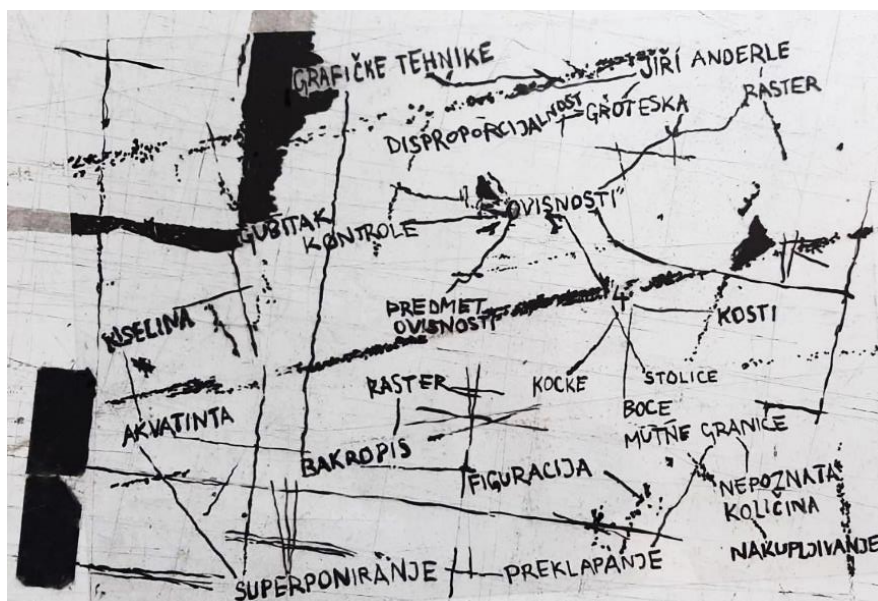 GRAFIČKE TEHNIKE
JIŘÍ ANDERLE
DISPROPORCIJALNOST
GROTESKA
RASTER
GUBITAK
KONTROLE
"OVISNOSTI"
PREDMET
OVISNOSTI
4
KOSTI
KISELINA
RASTER
KOCKE
STOLICE
BOCE
AKVATINTA
MUTNE GRANICE
BAKROPIS
FIGURACIJA
NEPOZNATA
KOLIČINA
NAKUPLJIVANJE
SUPERPONIRANJE
PREKLAPANJE